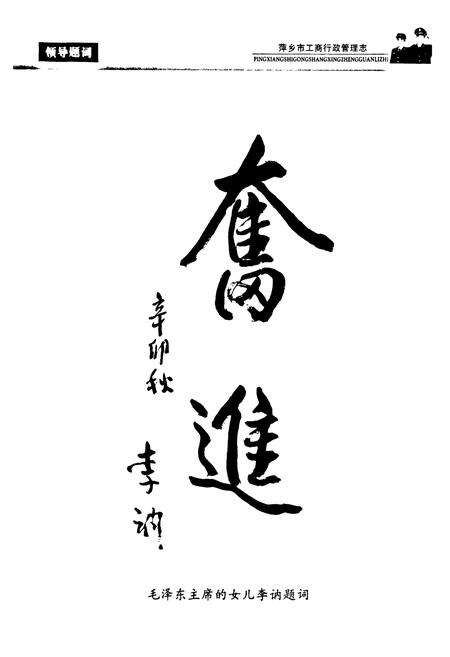 领导题词
萍乡市工商行政管理志
PINGXIANGSHIGONGSHANGXINGZHENGGUANLIZHI
奮進
辛卯秋
李讷
毛泽东主席的女儿李讷题词